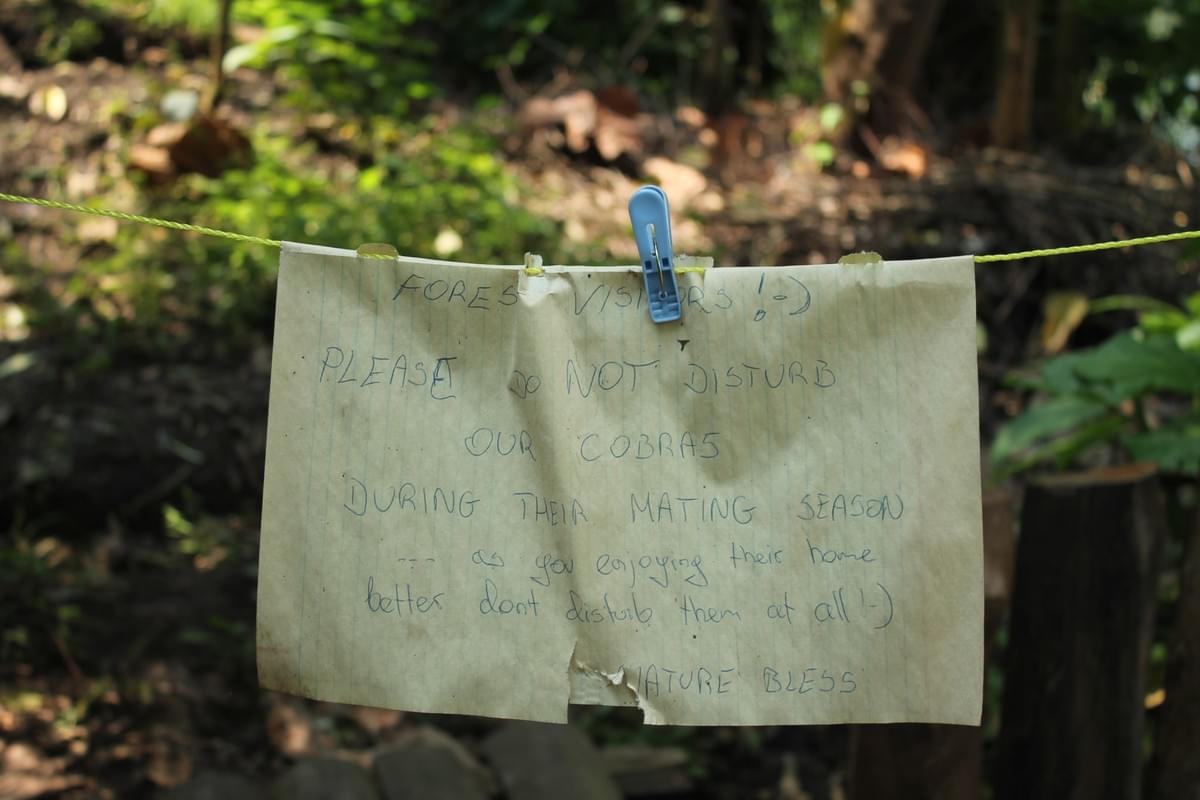 FORES VISI RS !-)
PLEASE DO NOT DISTURB
OUR COBRAS
DURING THEIR MATING SEASON
--- as you enjoying their home
better dont disturb them at all !-)
NATURE BLESS